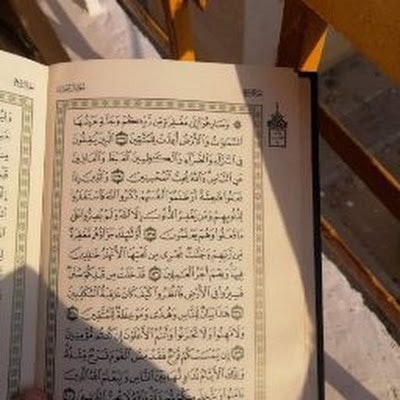 وَسَارِعُوٓا۟ إِلَىٰ مَغْفِرَةٍ مِّن رَّبِّكُمْ وَجَنَّةٍ عَرْضُهَا
ٱلسَّمَـٰوَٰتُ وَٱلْأَرْضُ أُعِدَّتْ لِلْمُتَّقِينَ ١٣٣ ٱلَّذِينَ يُنفِقُونَ
فِى ٱلسَّرَّآءِ وَٱلضَّرَّآءِ وَٱلْكَـٰظِمِينَ ٱلْغَيْظَ وَٱلْعَافِينَ
عَنِ ٱلنَّاسِ وَٱللَّهُ يُحِبُّ ٱلْمُحْسِنِينَ ١٣٤ وَٱلَّذِينَ إِذَا
فَعَلُوا۟ فَـٰحِشَةً أَوْ ظَلَمُوٓا۟ أَنفُسَهُمْ ذَكَرُوا۟ ٱللَّهَ فَٱسْتَغْفَرُوا۟
لِذُنُوبِهِمْ وَمَن يَغْفِرُ ٱلذُّنُوبَ إِلَّا ٱللَّهُ وَلَمْ يُصِرُّوا۟ عَلَىٰ
مَا فَعَلُوا۟ وَهُمْ يَعْلَمُونَ ١٣٥ أُو۟لَـٰٓئِكَ جَزَآؤُهُم مَّغْفِرَةٌ
مِّن رَّبِّهِمْ وَجَنَّـٰتٌ تَجْرِى مِن تَحْتِهَا ٱلْأَنْهَـٰرُ خَـٰلِدِينَ
فِيهَا وَنِعْمَ أَجْرُ ٱلْعَـٰمِلِينَ ١٣٦ قَدْ خَلَتْ مِن قَبْلِكُمْ سُنَنٌ
فَسِيرُوا۟ فِى ٱلْأَرْضِ فَٱنظُرُوا۟ كَيْفَ كَانَ عَـٰقِبَةُ ٱلْمُكَذِّبِينَ
١٣٧ هَـٰذَا بَيَانٌ لِّلنَّاسِ وَهُدًى وَمَوْعِظَةٌ لِّلْمُتَّقِينَ ١٣٨
وَلَا تَهِنُوا۟ وَلَا تَحْزَنُوا۟ وَأَنتُمُ ٱلْأَعْلَوْنَ إِن كُنتُم مُّؤْمِنِينَ
١٣٩ إِن يَمْسَسْكُمْ قَرْحٌ فَقَدْ مَسَّ ٱلْقَوْمَ قَرْحٌ مِّثْلُهُۥ
وَتِلْكَ ٱلْأَيَّامُ نُدَاوِلُهَا بَيْنَ ٱلنَّاسِ وَلِيَعْلَمَ ٱللَّهُ ٱلَّذِينَ